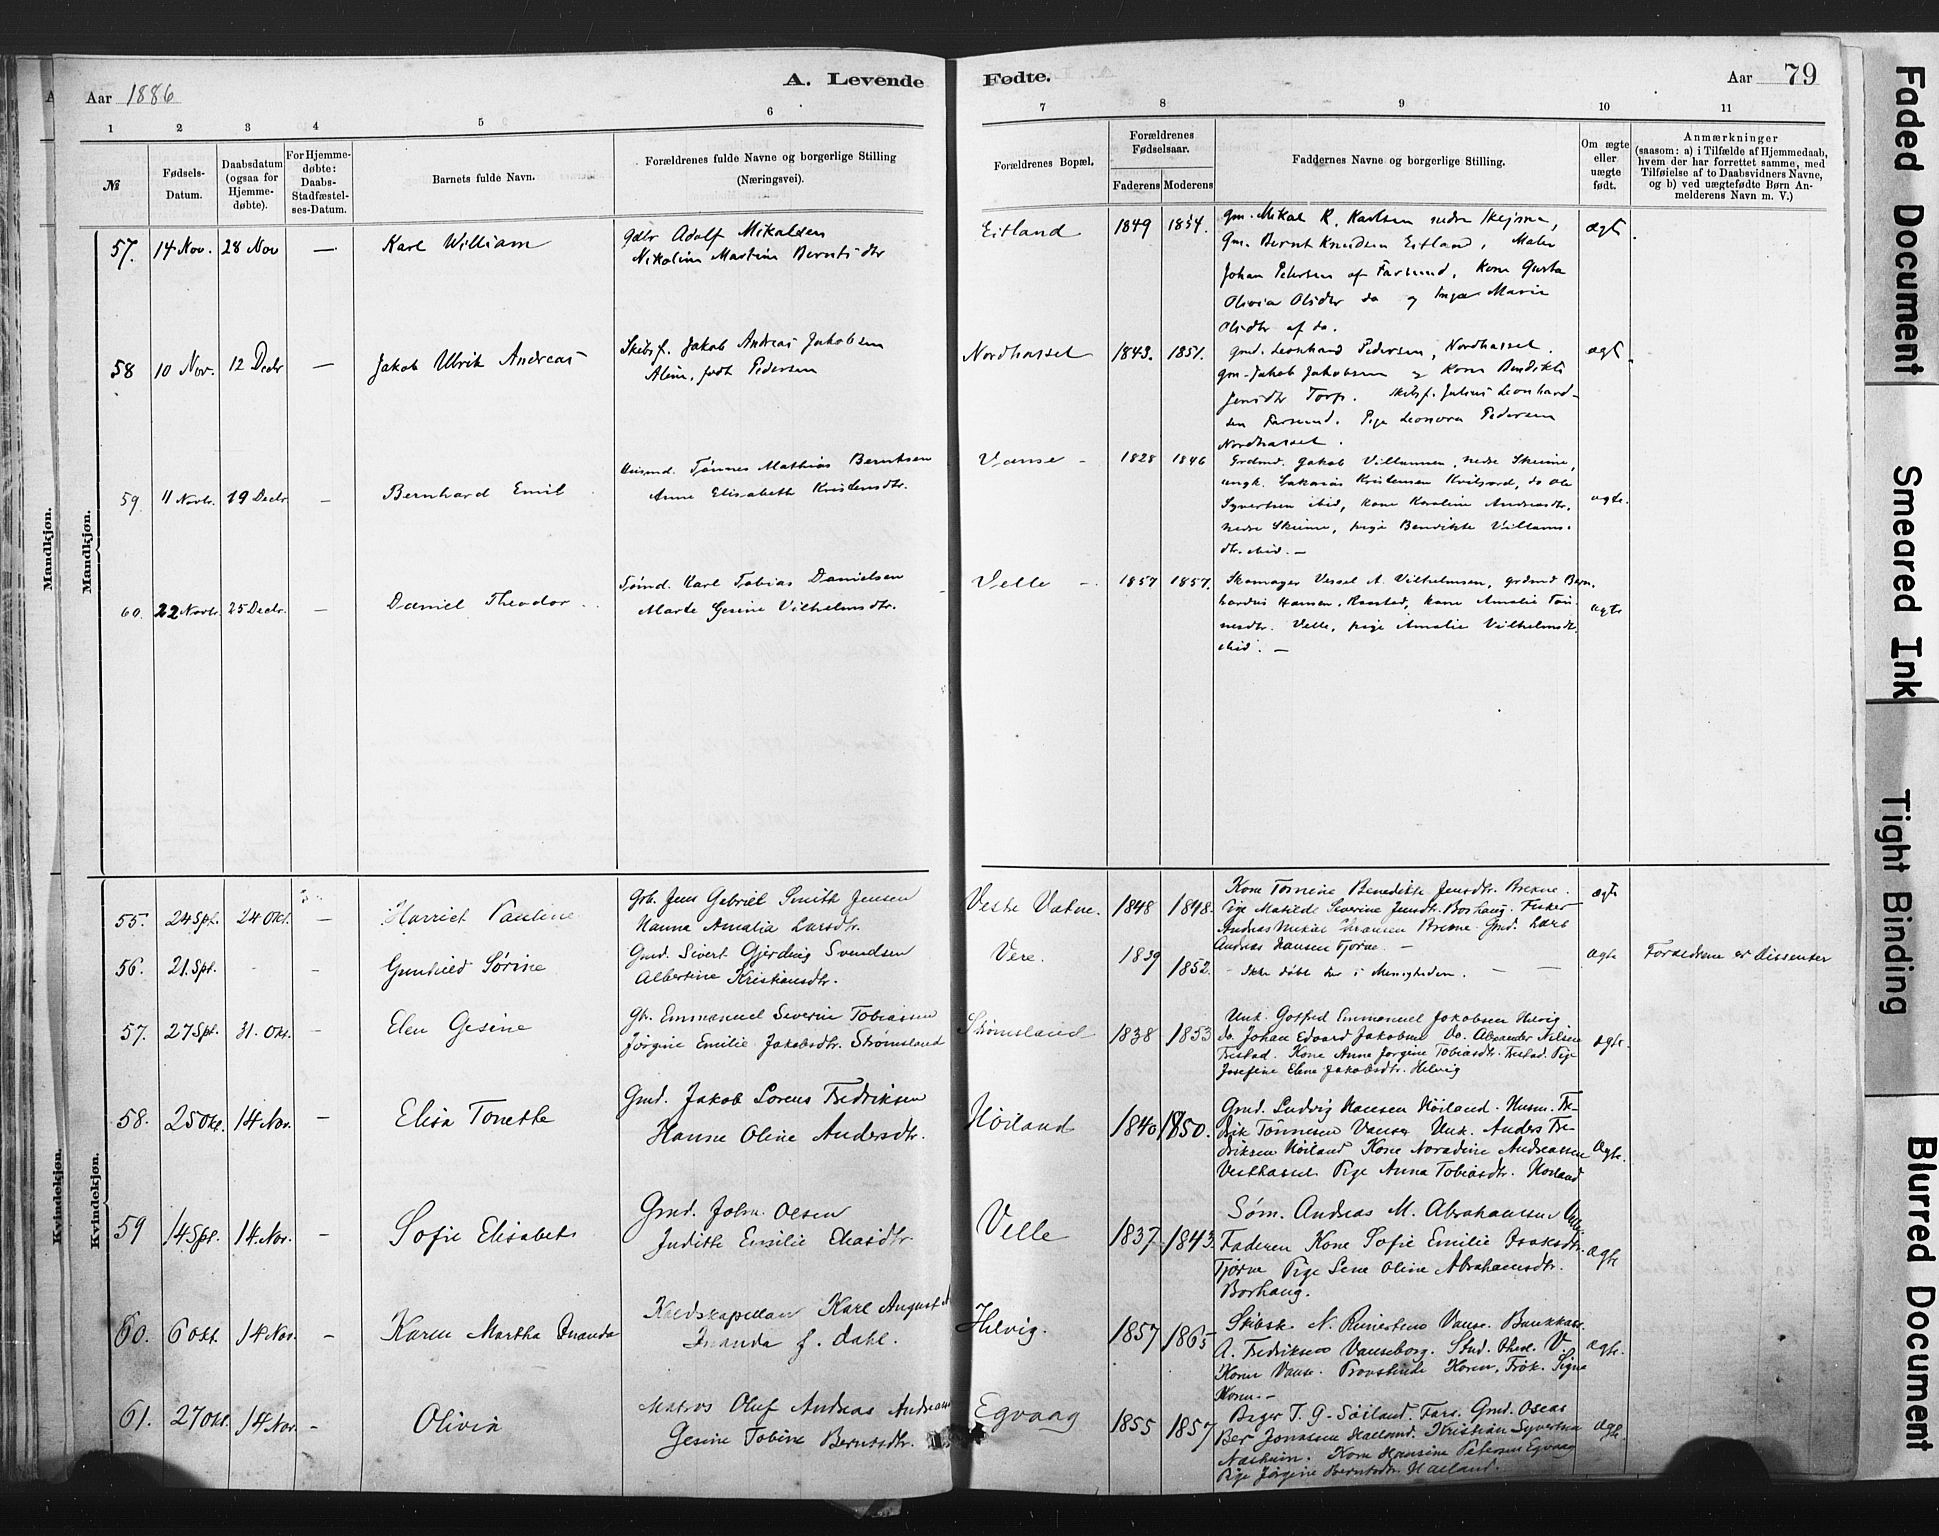 Aar 1886
A. Levende
Fødte.
Aar 79
1 2 3 4 5 6 7 8 9 10 11
№
Fødsels-
Datum.
Daabsdatum
(ogsaa for
Hjemme-
døbte).
For Hjemme-
døbte:
Daabs-
Stadfæstel-
ses-Datum.
Barnets fulde Navn.
Forældrenes fulde Navne og borgerlige Stilling
(Næringsvei).
Forældrenes Bopæl.
Forældrenes
Fødselsaar.
Faderens Moderens
Faddernes Navne og borgerlige Stilling.
Om ægte
eller
uægte
født.
Anmærkninger
(saasom: a) i Tilfælde af Hjemmedaab,
hvem der har forrettet samme, med
Tilføielse af to Daabsvidners Navne,
og b) ved uægtefødte Børn An-
melderens Navn m. V.)
Mandkjøn.
Mandkjøn.
57. 14 Nov. 28 Nov — Karl William
Adolf Mikalsen
Nikoline Martine Berntsdtr
Eitland 1849 1854.
gm. Mikal R. Karlsen nedre Skeime,
Gm. Bernt Knudsen Eitland, Maler
Johan Petersen af Farsund, Kone Gusta
Olivia Olsdtr do og Inga Marie
Olsdtr af do.
ægt
58 10 Nov. 12 Decbr — Jakob Ulrik Andreas
Skibsf. Jakob Andreas Jakobsen
Aline, født Pedersen
Nordhasset 1843. 1851.
gmd. Leonhard Pedersen, Nordhasset.
gm. Jakob Jakobsen og Kone Bendikte
Jensdtr Torp. Skibsf. Julius Leonhard-
sen Farsund. Pige Leonora Pedersen
Nordhasset.
ægt
59. 11 Novbr. 19 Decbr — Bernhard Emil
Husmd. Tønnes Mathias Berntsen
Anne Elisabeth Kristensdtr.
Vanse - 1828 1846
Grdmd. Jakob Villumsen, nedre Skeime,
ungk. Sakarias Kristensen Kviljord, do Ole
Syvertsen ibid, kone Karoline Andreasdtr.
nedre Skeime, pige Bendikte Villums-
dtr. ibid. —
ægte.
60. 22 Novbr. 25 Decbr. — Daniel Theodor
Tømd. Karl Tobias Danielsen
Marte Gesine Vilhelmsdtr.
Velle - 1857 1857.
Skomager Vessel A. Vilhelmsen, grdmd Bern-
hardus Hansen, Raastad, kone Amalie Tøn-
nesdtr. Velle, pige Amalie Vilhelmsdtr.
ibid. —
ægte
Kvindekjøn.
Kvindekjøn.
55. 24 Spt. 24 Okt. — Harriet Pauline
Gb. Jens Gabriel Smith Jensen
Hanna Amalia Larsdtr.
Vestre Vatne. 1848 1848.
Kone Tomine Benedikte Jensdtr. Brekne.
Pige Matilde Severine Jensdtr. Borhaug. Fisker
Andreas Brekne Gmd. Lars
Andreas Hansen Tjørve. —
ægte
56. 21. Spt. - - Gunhild Sørine
Gmd. Sivert Gjerding Svendsen
Albertine Kristiansdtr.
Vere. 1839 1852.
- Ikke døbt her i Menigheden. — —
ægte Forældrene er Dissenter
57. 27 Spt. 31. Okt. — Elen Gesine
Gb. Emmanuel Severin Tobiassen
Jørgine Emilie Jakobsdtr. Strømsland
Strømsland 1838 1853
Unk. Gotfred Emmanuel Jakobsen Helvig
do. Johan Edvard Jakobsen Do. Alexander Nilsen
Trestad. Kone Anne Jørgine Tobiasdtr. Trestad. Pige
Josefine Elene Jakobsdtr. Helvig
ægte.
58. 25 Okt. 14 Nov. — Elisa Tonette
Gmd. Jakob Lorens Fredriksen
Hanne Oline Andersdtr.
Høiland 1840 1850.
Gmd. Ludvig Hansen Høiland. Husm. Fre-
drik Tønnesen Vanse Unk. Anders Fre-
driksen Høiland Kone Noradine Andreassen
Vesthassel Pige Anna Tobiasdtr. Høiland
ægte.
59 14 Spt. 14. Nov. — Sofie Elisabet
Gmd. John Olsen
Judithe Emilie Eliasdtr
Velle 1837 1843.
Søm. Andreas M. Abrahamsen Velle
Faderen Kone Sofie Emilie Isaksdtr.
Tjørve Pige Lene Oline Abrahamsdtr.
Borhaug.
ægte
60. 6 Okt. 14 Nov. — Karen Martha Inanda
Kaldskapellan Karl August
Inanda f. Dahl.
Helvig. 1857 1865
Skibsk. N. Reinertsen Vanse. Bankkass.
A. Fredriksen Vanseborg. Stud. theol. V.
Koren Vanse. Provstinde Koren, Frøk. Signe
Koren. -
ægte.
61. 27 Okt. 14 Nov. — Olivia
Matros Oluf Andreas Andreasen
Gesine Tobine Berntsdtr.
Egvaag 1855 1857
Bager T. G. Søiland. Fars. Gmd. Oseas
Ber Jonassen Haaland Kristian Syvertsen
Næsheim. Kone Hansine Petersen Egvaag
Pige Jørgine Berntsdtr. Haaland.
ægte.
Faded Document
Smeared Ink
Tight Binding
Blurred Document